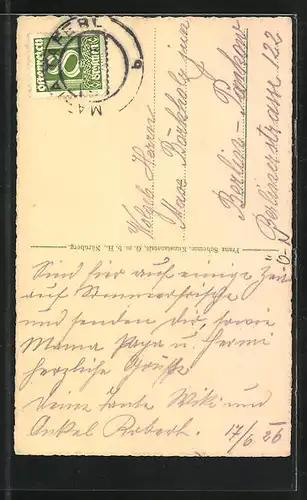 MARIA TAFERL
Österreich
10
Groschen
Wolgeb. Herrn
Max Borkholz jun
Berlin-Pankow
Berlinerstrasse 122
Franz Schemm, Kunstanstalt, G. m. b. H., Nürnberg
Sind hier auf einige Zeit
auf Sommerfrische
und senden dir, sowie
Mama Papa u. Hermi
herzliche Grüsse
Deine Tante Wiki und
Onkel Robert. 17/6. 26